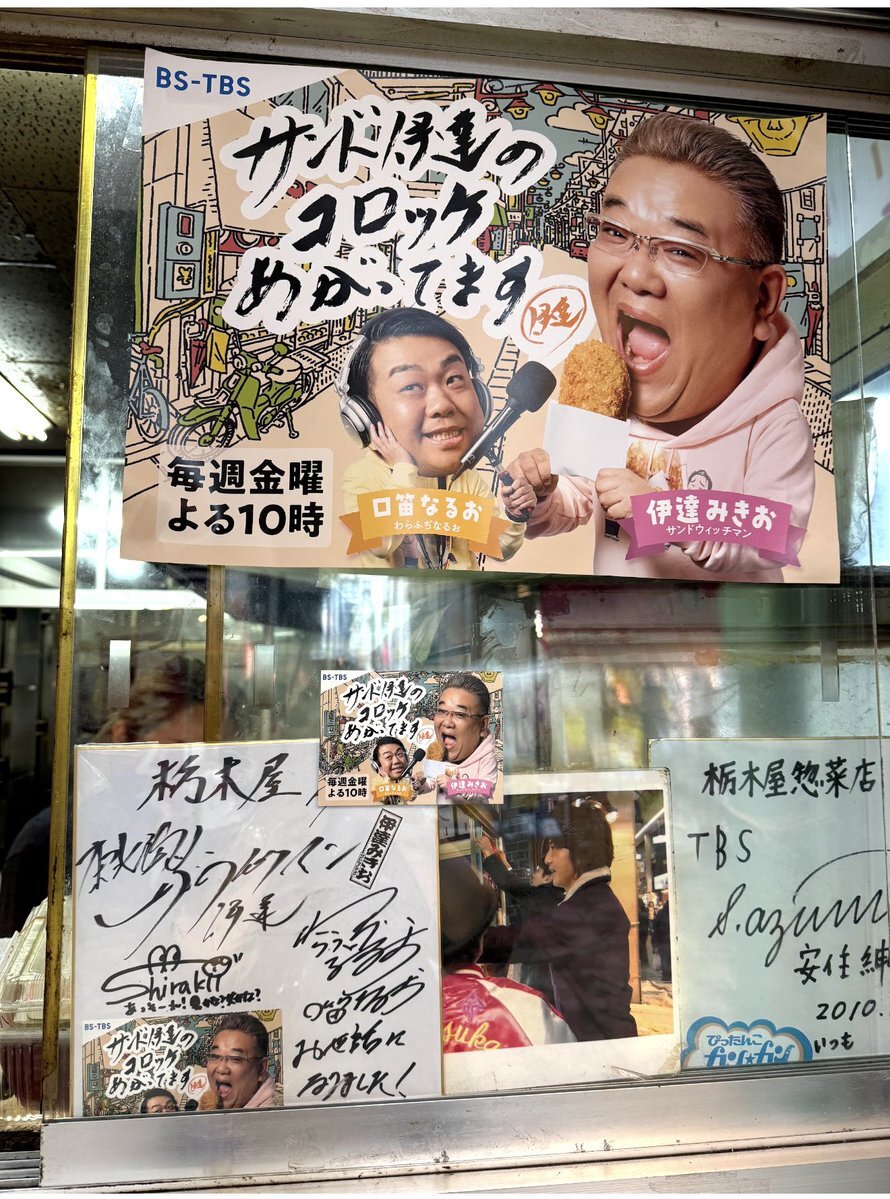 BS-TBS
サンド伊達の
コロッケ
めぐってます
伊達
毎週金曜
よる10時
口笛なるお
わらふぢなるお
伊達みきお
サンドウィッチマン
BS-TBS
サンド伊達の
コロッケ
めぐってます
伊達
毎週金曜
よる10時
口笛なるお
伊達みきお
栃木屋
サンドウィッチマン
伊達
伊達みきお
Shiraki
口笛なるお
お世話に
なりました!
BS-TBS
サンド伊達の
コロッケ
めぐってます
伊達
栃木屋惣菜店
TBS
S.azum
安住紳
2010.
ぴったんこ
カン★カン
いつも